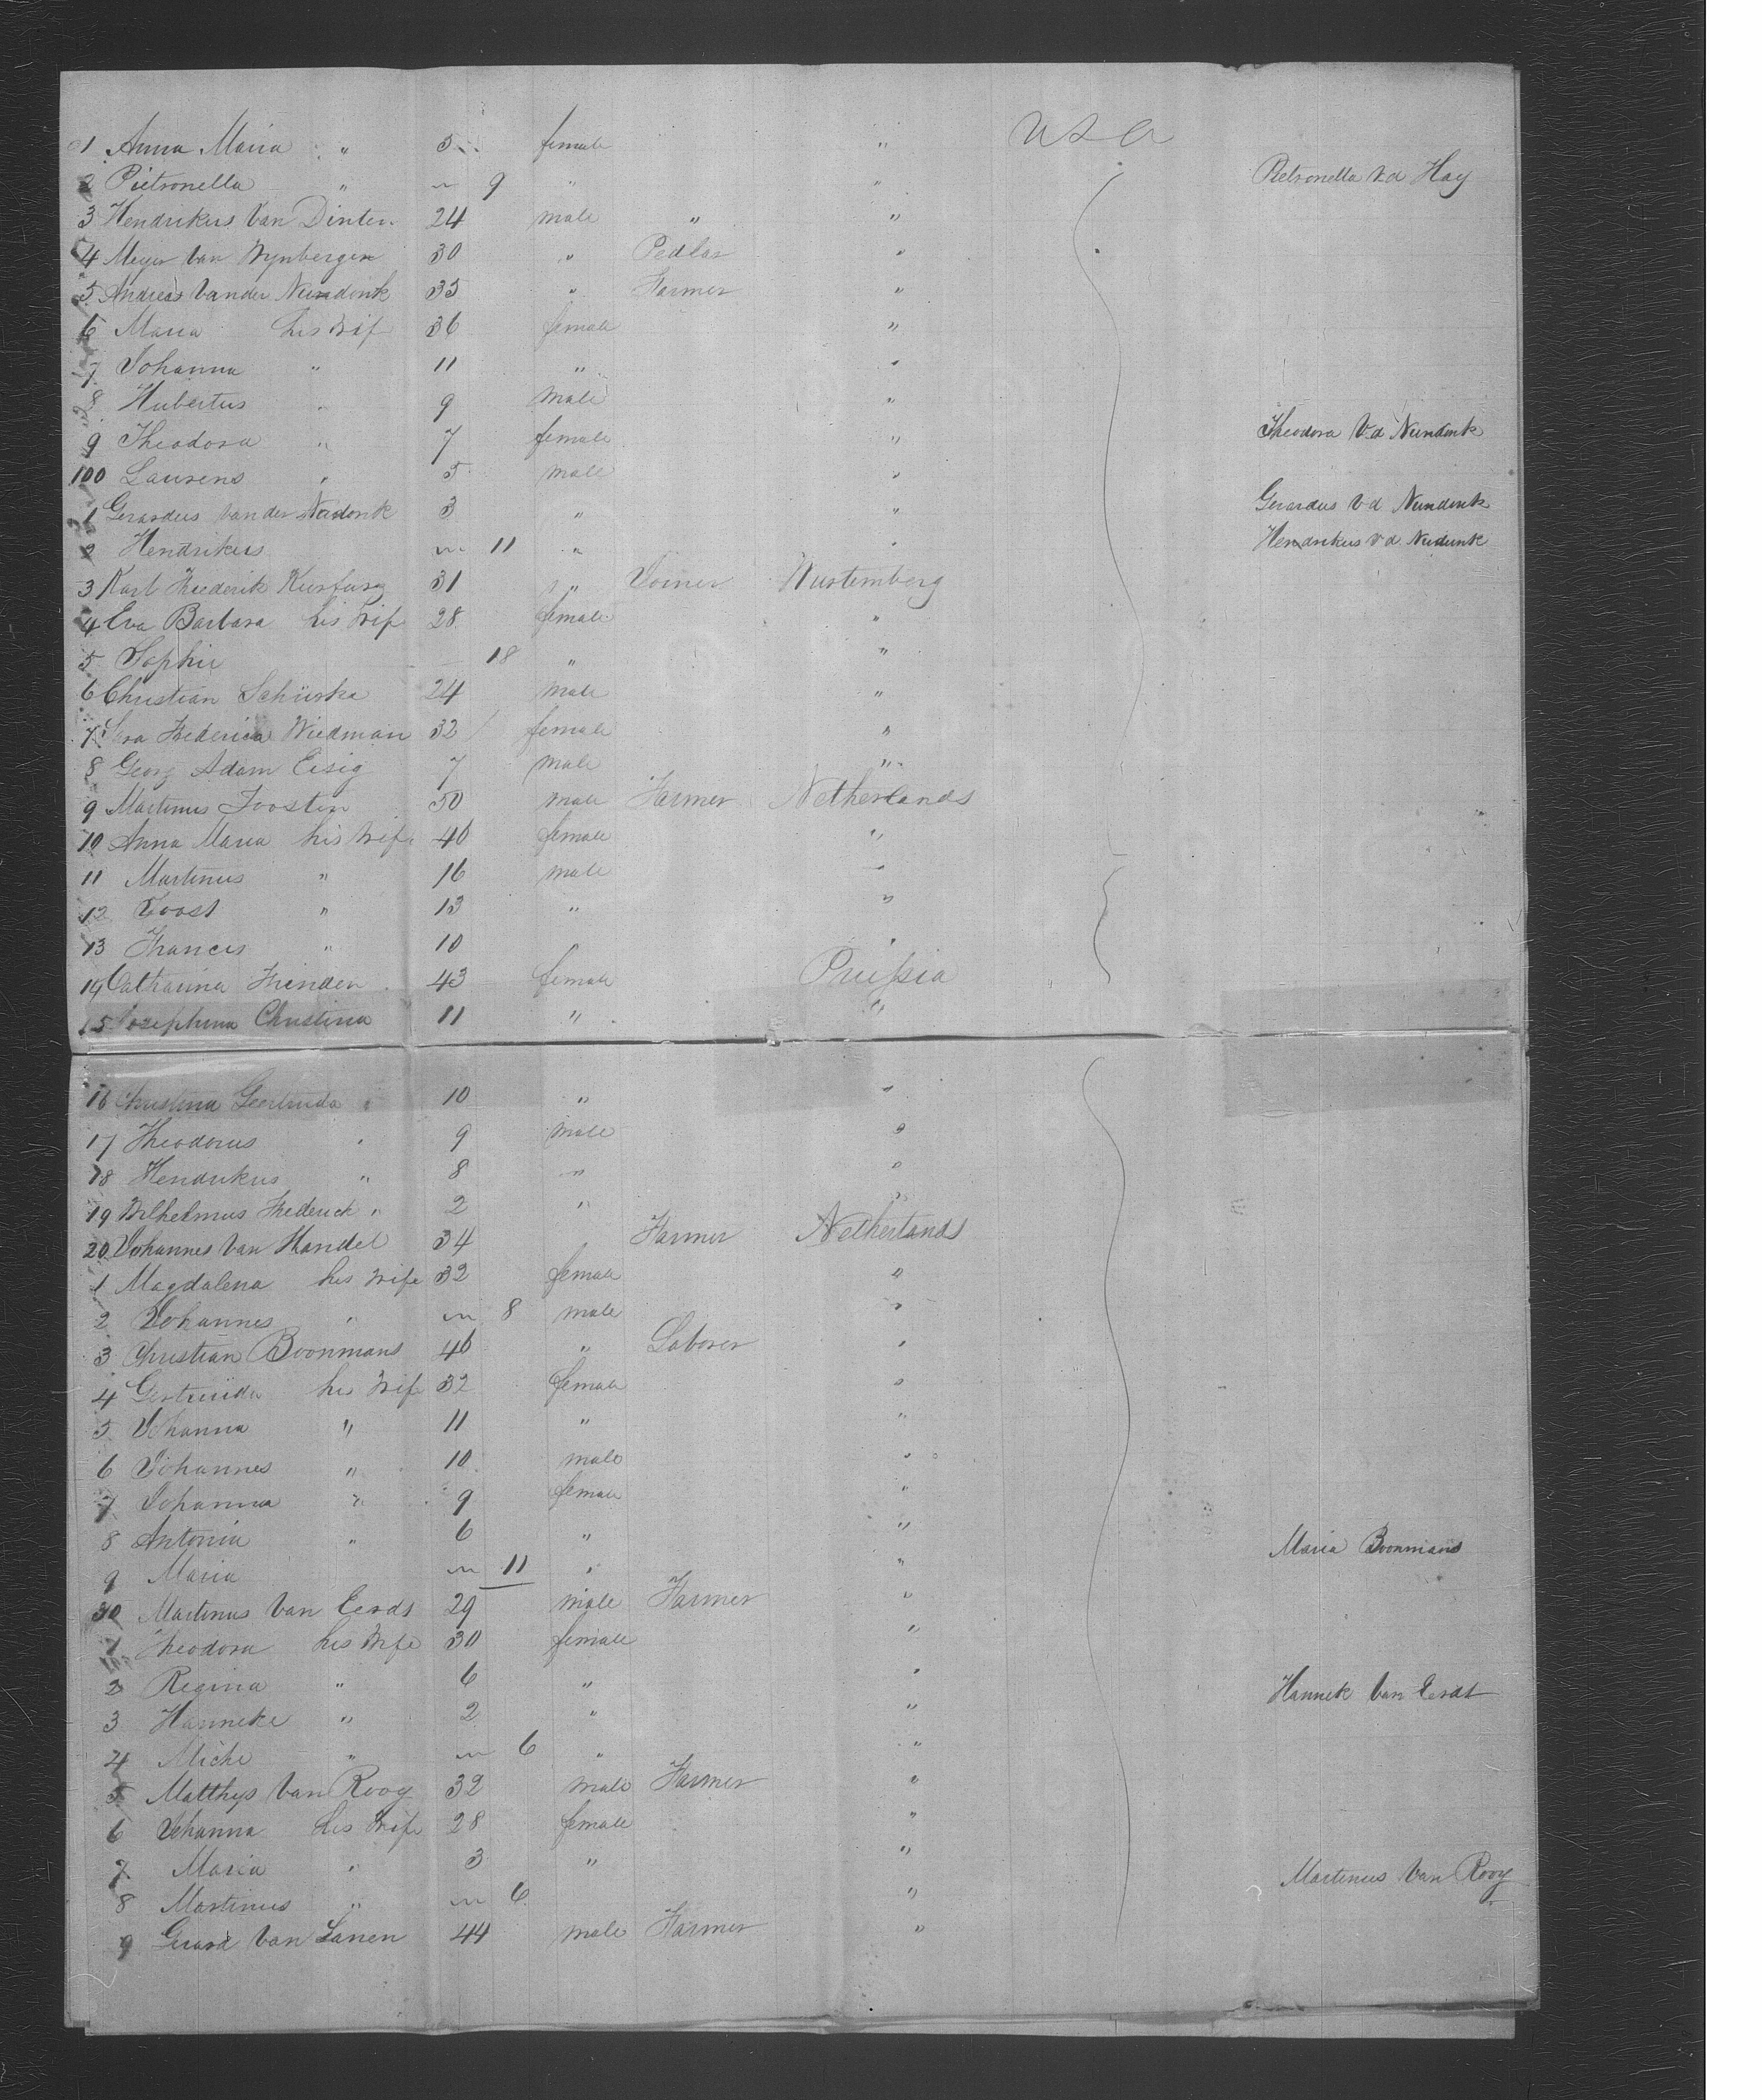 1 Anna Maria " 5 female " USA
2 Pietronella " " 9 " " Pietronella v.d Hay
3 Hendrikus Van Dinter 24 male " "
4 Meyer Van Wynbergen 30 " Pedlar "
5 Andreas Vander Nundonk 35 " Farmer "
6 Maria his Wife 36 female "
7 Johanna " 11 " "
8 Hubertus " 9 male "
9 Theodora " 7 female " Theodora V.d Nundonk
100 Laurens " 5 male "
1 Gerardus Van der Nundonk 3 " " Gerardus V d Nundonk
2 Hendrikus " 11 " " Hendrikus V d Nundonk
3 Karl Frederik 31 " Joiner Wurtemberg
4 Eva Barbara his Wife 28 female "
5 Sophie 18 " "
6 Christian 24 male "
7 Frederica Wiedman 32 female "
8 Georg Adam Eisig 7 male "
9 Martinus Joosten 50 male Farmer Netherlands
10 Anna Maria his Wife 46 female "
11 Martinus " 16 male "
12 Joost " 13 " "
13 Francis " 10 "
14 Catharina Frenden 43 female Prussia
15 Josephina Christina 11 " "
16 Christina Gertruda " 10 " "
17 Theodorus " 9 male "
18 Hendrikus " 8 " "
19 Wilhelmus Frederick " 2 " "
20 Johannes Van Handel 34 " Farmer Netherlands
1 Magdalena his Wife 32 female "
2 Johannes " " 8 male "
3 Christian Boonmans 46 " Laborer "
4 Gertruida his Wife 32 female "
5 Johanna " 11 " "
6 Johannes " 10 male "
7 Johanna " 9 female "
8 Antonia " 6 " "
9 Maria " 11 " " Maria Boonmans
30 Martinus Van Eerdt 29 male Farmer "
1 Theodora his Wife 30 female "
2 Regina " 6 " "
3 Hanneke " 2 " " Hannek Van Eerdt
4 Miche " " 6 " "
5 Matthys Van Rooy 32 male Farmer "
6 Johanna his Wife 28 female "
7 Maria " 3 " "
8 Martinus " " 6 " Martinus Van Rooy
9 Gerard Van Lanen 44 male Farmer "